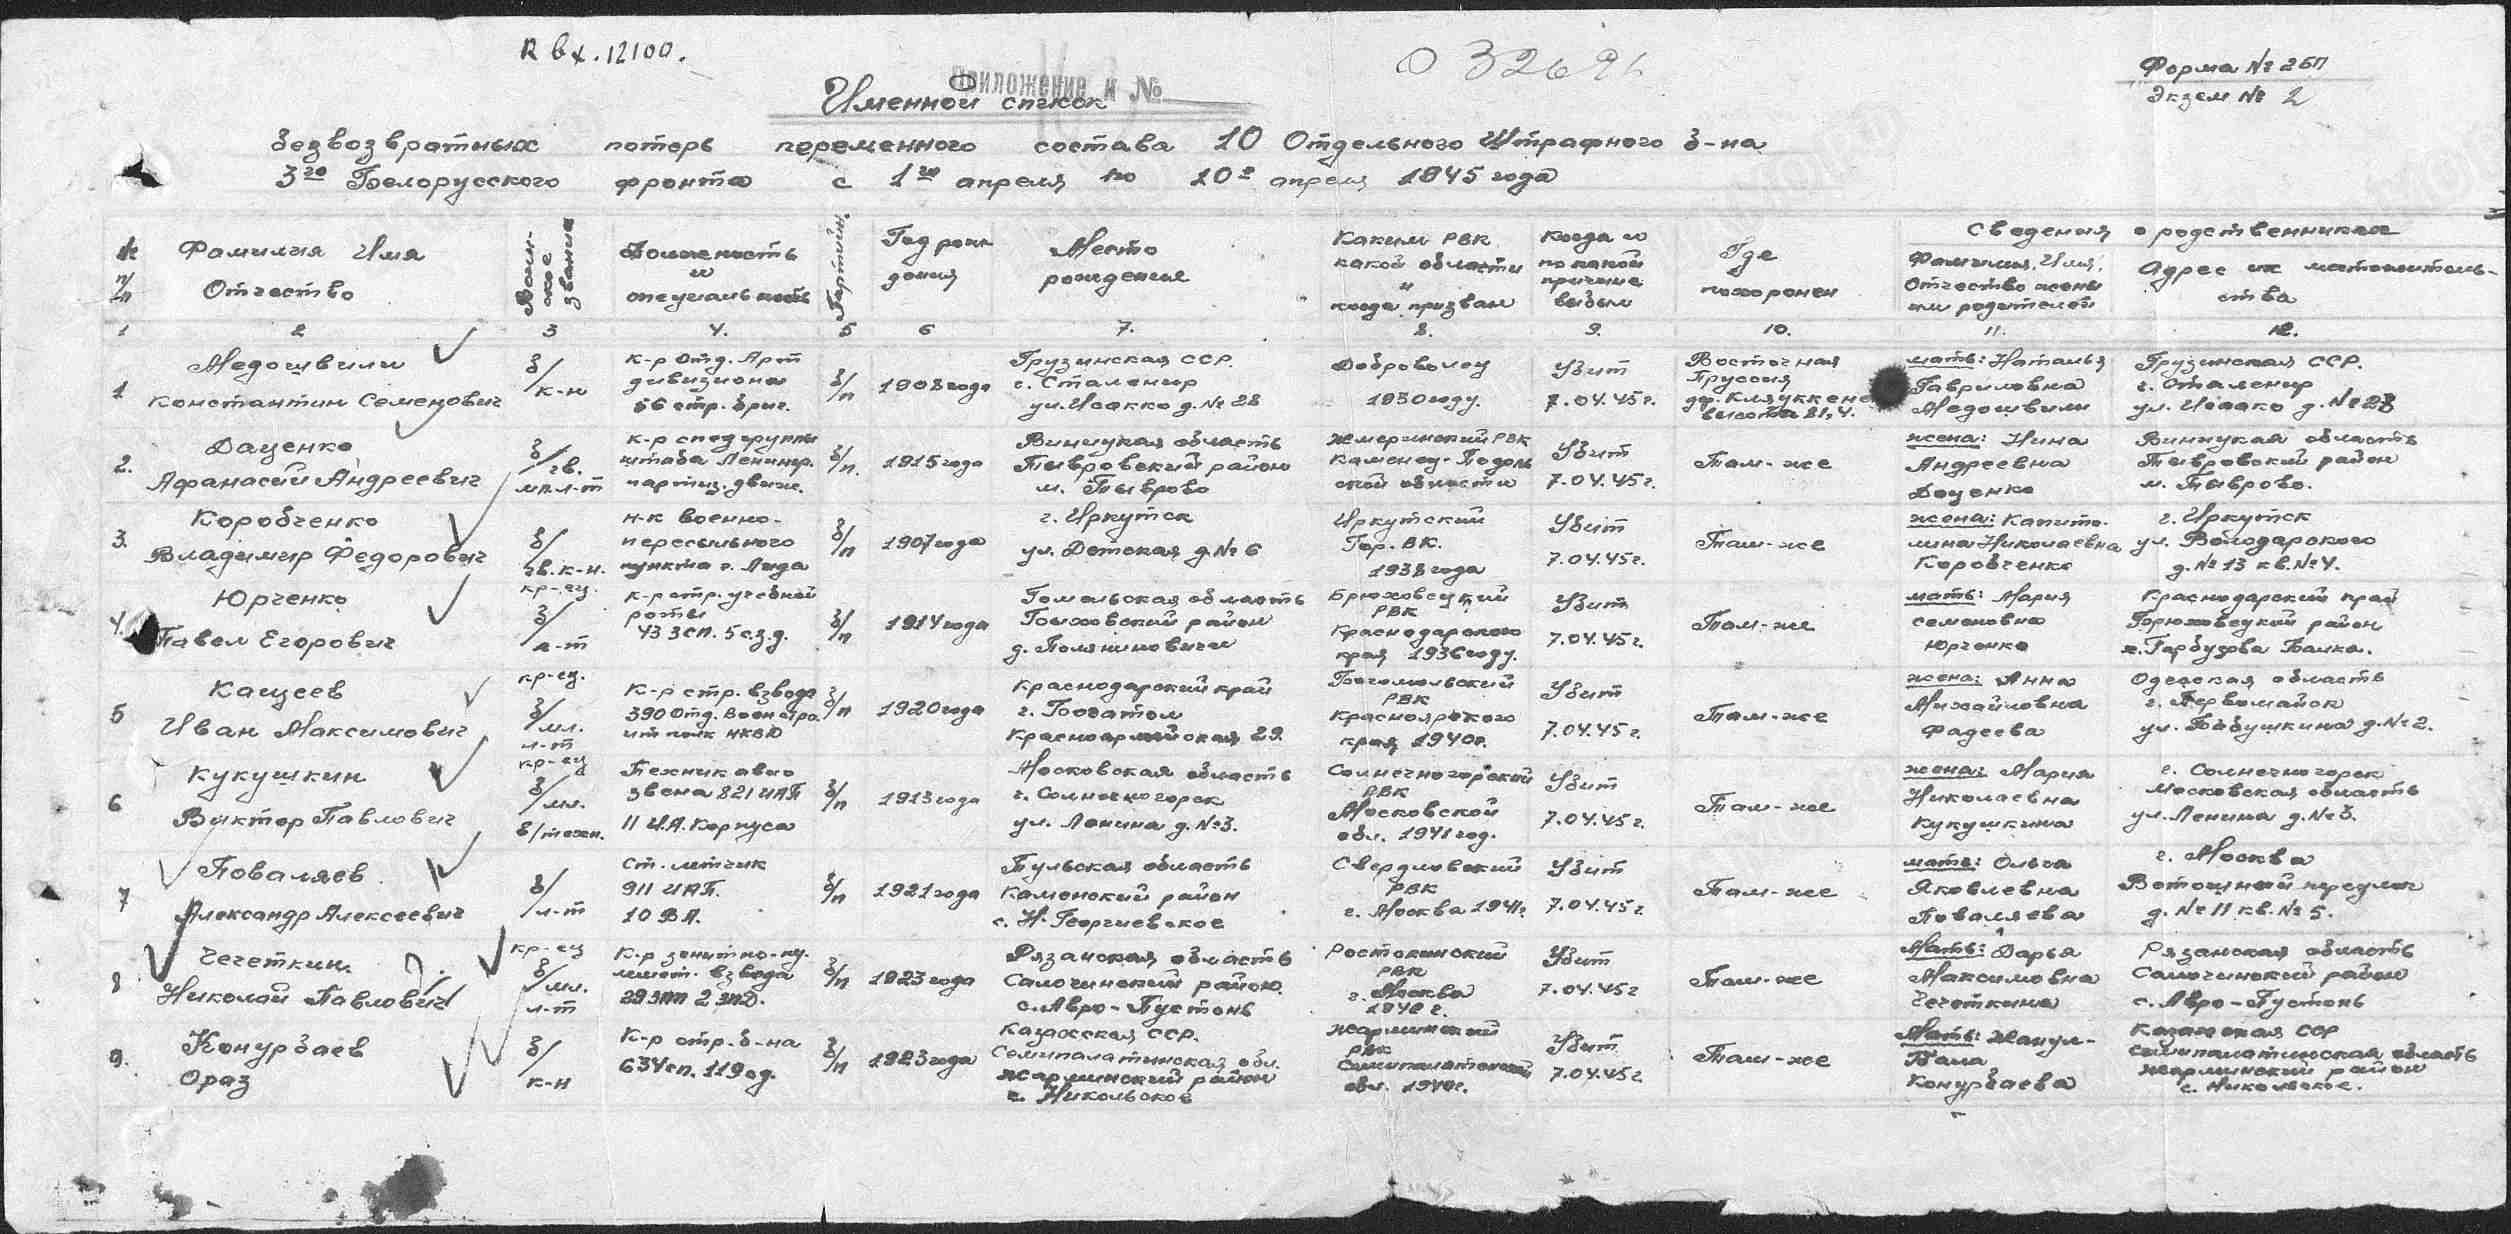 К вх. 12100.
Приложение к №
Форма № 26П
Экзем № 2
Именной список
безвозвратных потерь переменного состава 10 Отдельного Штрафного б-на
3го Белорусского фронта с 1го апреля по 10е апреля 1945 года
№ п/п
Фамилия Имя Отчество
Воин-ское звание
Должность и специальность
Партийн.
Год рож-дения
Место рождения
Каким РВК какой области и когда призван
Когда и по какой причине выбыл
Где похоронен
Сведения о родственниках
Фамилия, Имя, Отчество жены или родителей
Адрес их местожитель-ства
1 2 3 4. 5 6 7. 8. 9. 10. 11. 12.
1 Медошвили Константин Семенович
б/к-н
к-р Отд. Арт дивизиона 56 стр. бриг.
б/п
1908 года
Грузинская ССР. г. Сталенир ул. Исакко д. № 28
Доброволец 1930 году.
Убит 7.04.45г.
Восточная Пруссия высота 81,4.
мать: Наталья Гавриловна Медошвили
Грузинская ССР. г. Сталенир ул. Исакко д. № 28
2. Даценко Афанасий Андреевич
б/гв. мл. л-т
к-р спецгруппы штаба Ленингр. партиз. движ.
б/п.
1915 года
Винницкая область Тывровский район м. Тыврово
Жмеринский РВК Каменец-Подоль ской области
Убит 7.04.45г.
Там-же
жена: Нина Андреевна Даценко
Винницкая область Тывровский район м. Тыврово.
3. Коробченко Владимир Федорович
б/гв. к-н.
н-к военно-пересыльного пункта г. Лида
б/п
1907 года
г. Иркутск ул. Детская д. № 6
Иркутский Гор. ВК. 1938 года
Убит 7.04.45г.
Там-же
жена: Капито-лина Николаевна Коробченко
г. Иркутск ул. Володарского д. № 13 кв. № 4.
4. Юрченко Павел Егорович
кр-ец. б/л-т
к-р стр. учебной роты 43 зсп. 5 с.з.д.
б/п
1914 года
Гомельская область Быховский район д. Поляниновичи
Брюховецкий РВК Краснодарского края 1936 году.
Убит 7.04.45г.
Там-же
мать: Мария Семеновна Юрченко
Краснодарский край Брюховецкий район х. Гарбузова Балка.
5 Кащеев Иван Максимович
кр-ец. б/мл. л-т
к-р стр. взвода 390 Отд. НКВД
б/п
1920 года
Краснодарский край г. Боготол Красноармейская 29.
РВК Красноярского края 1940г.
Убит 7.04.45г.
Там-же
жена: Анна Михайловна Фадеева
Одесская область г. Первомайск ул. Бабушкина д. № 2.
6 Кукушкин Виктор Павлович
кр-ец б/мл. в/техн.
Техник авиа звена 821 ИАП 11 И.А. Корпуса
б/п
1913 года
Московская область г. Солнечногорск ул. Ленина д. № 3.
Солнечногорский РВК Московской обл. 1941 год.
Убит 7.04.45г.
Там-же
жена: Мария Николаевна Кукушкина
г. Солнечногорск Московская область ул. Ленина д. № 3.
7 Поваляев Александр Алексеевич
б/л-т
Ст. летчик 911 ИАП. 10 В.А.
б/п
1921 года
Тульская область Каменский район с. Н. Георгиевское
Свердловский РВК г. Москва 1941г.
Убит 7.04.45г.
Там-же
мать: Ольга Яковлевна Поваляева
г. Москва Ветошный переулок д. № 11 кв. № 5.
8 Чечеткин Николай Павлович
кр-ец б/мл. л-т
К-р зенитно-пу-лемет. взвода 29 зпп 2 зпд.
б/п
1923 года
Рязанская область Сапочинский район. с. Авро-Пустонь
Ростокинский РВК г. Москва 1940 г.
Убит 7.04.45г
Там-же
Мать: Дарья Максимовна Чечеткина
Рязанская область Сапочинский район с. Авро-Пустонь
9. Конурбаев Ораз
б/к-н
К-р стр. б-на 634 сп. 119 сд.
б/п
1923 года
Казахская ССР. Семипалатинская обл. Жарминский район с. Никольское
Жарминский РВК Семипалатинской обл. 1940г.
Убит 7.04.45г
Там-же
Мать: Жанул-Бала Конурбаева
Казахская ССР Семипалатинская область Жарминский район с. Никольское.